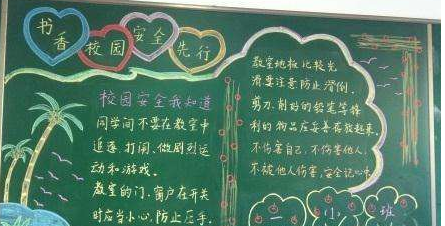 书香
校园
安全
先行
校园安全我知道
同学间不要在教室中
追逐、打闹、做剧烈运
动和游戏。
教室的门、窗户在开关
时应当小心,防止压手。
教室地板比较光
滑要注意防止滑倒。
剪刀、削好的铅笔等锋
利的物品应妥善存放起来,
不伤害自己,不伤害他人,
不被他人伤害,安全记心中
一
门
班